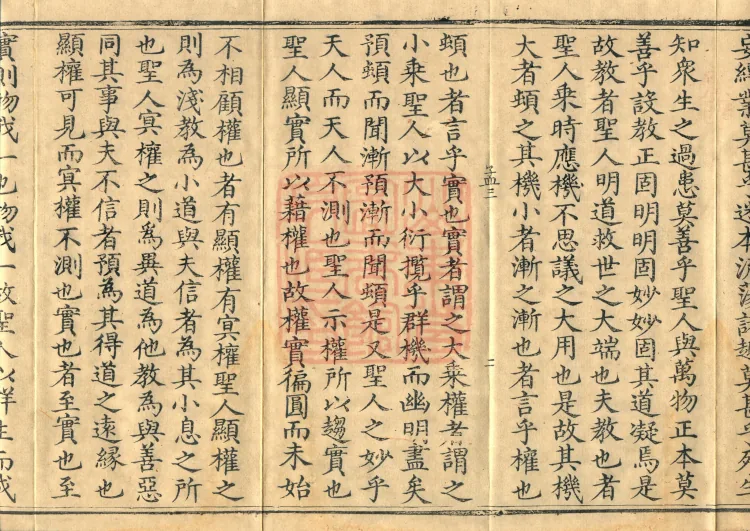 知衆生之過患莫善乎聖人與萬物正本莫
善乎設教正固明明固妙妙固其道凝焉是
故教者聖人明道救世之大端也夫教也者
聖人乘時應機不思議之大用也是故其機
大者頓之其機小者漸之漸也者言乎權也
孟三
二
頓也者言乎實也實者謂之大乘權者謂之
小乘聖人以大小衍攬乎群機而幽明盡矣
預頓而聞漸預漸而聞頓是又聖人之妙乎
天人而天人不測也聖人示權所以趨實也
聖人顯實所以藉權也故權實徧圓而未始
不相顧權也者有顯權有冥權聖人顯權之
則為淺教為小道與夫信者為其小息之所
也聖人冥權之則為異道為他教為與善惡
同其事與夫不信者預為其得道之遠緣也
顯權可見而冥權不測也實也者至實也至
實則物我一也物我一故聖人以群生而成